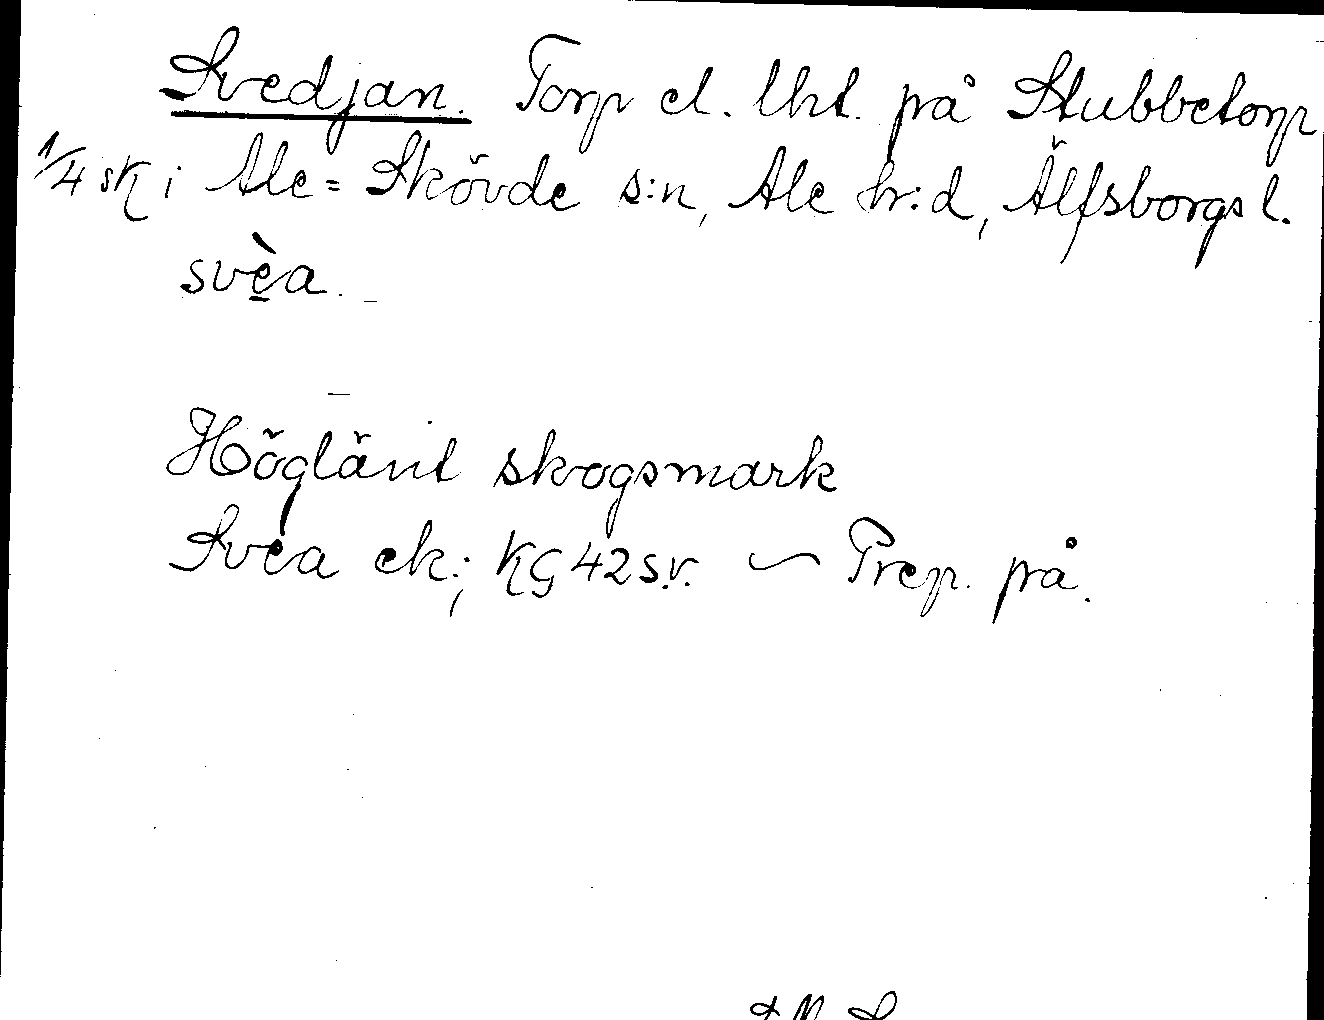 Svedjan. Torp el. lht. på Stubbetorp
1/4 sk i Ale=Skövde s:n, Ale hr:d, Älfsborgs l.
svèa.
Högländ skogsmark
Svea ek.; KG 42 s.v. ~ Prep. på.